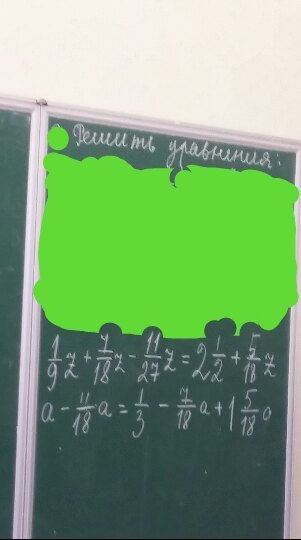 Решить уравнения:
1/9 z + 7/18 z - 11/27 z = 2 1/2 + 5/18 z
a - 11/18 a = 1/3 - 7/18 a + 1 5/18 a